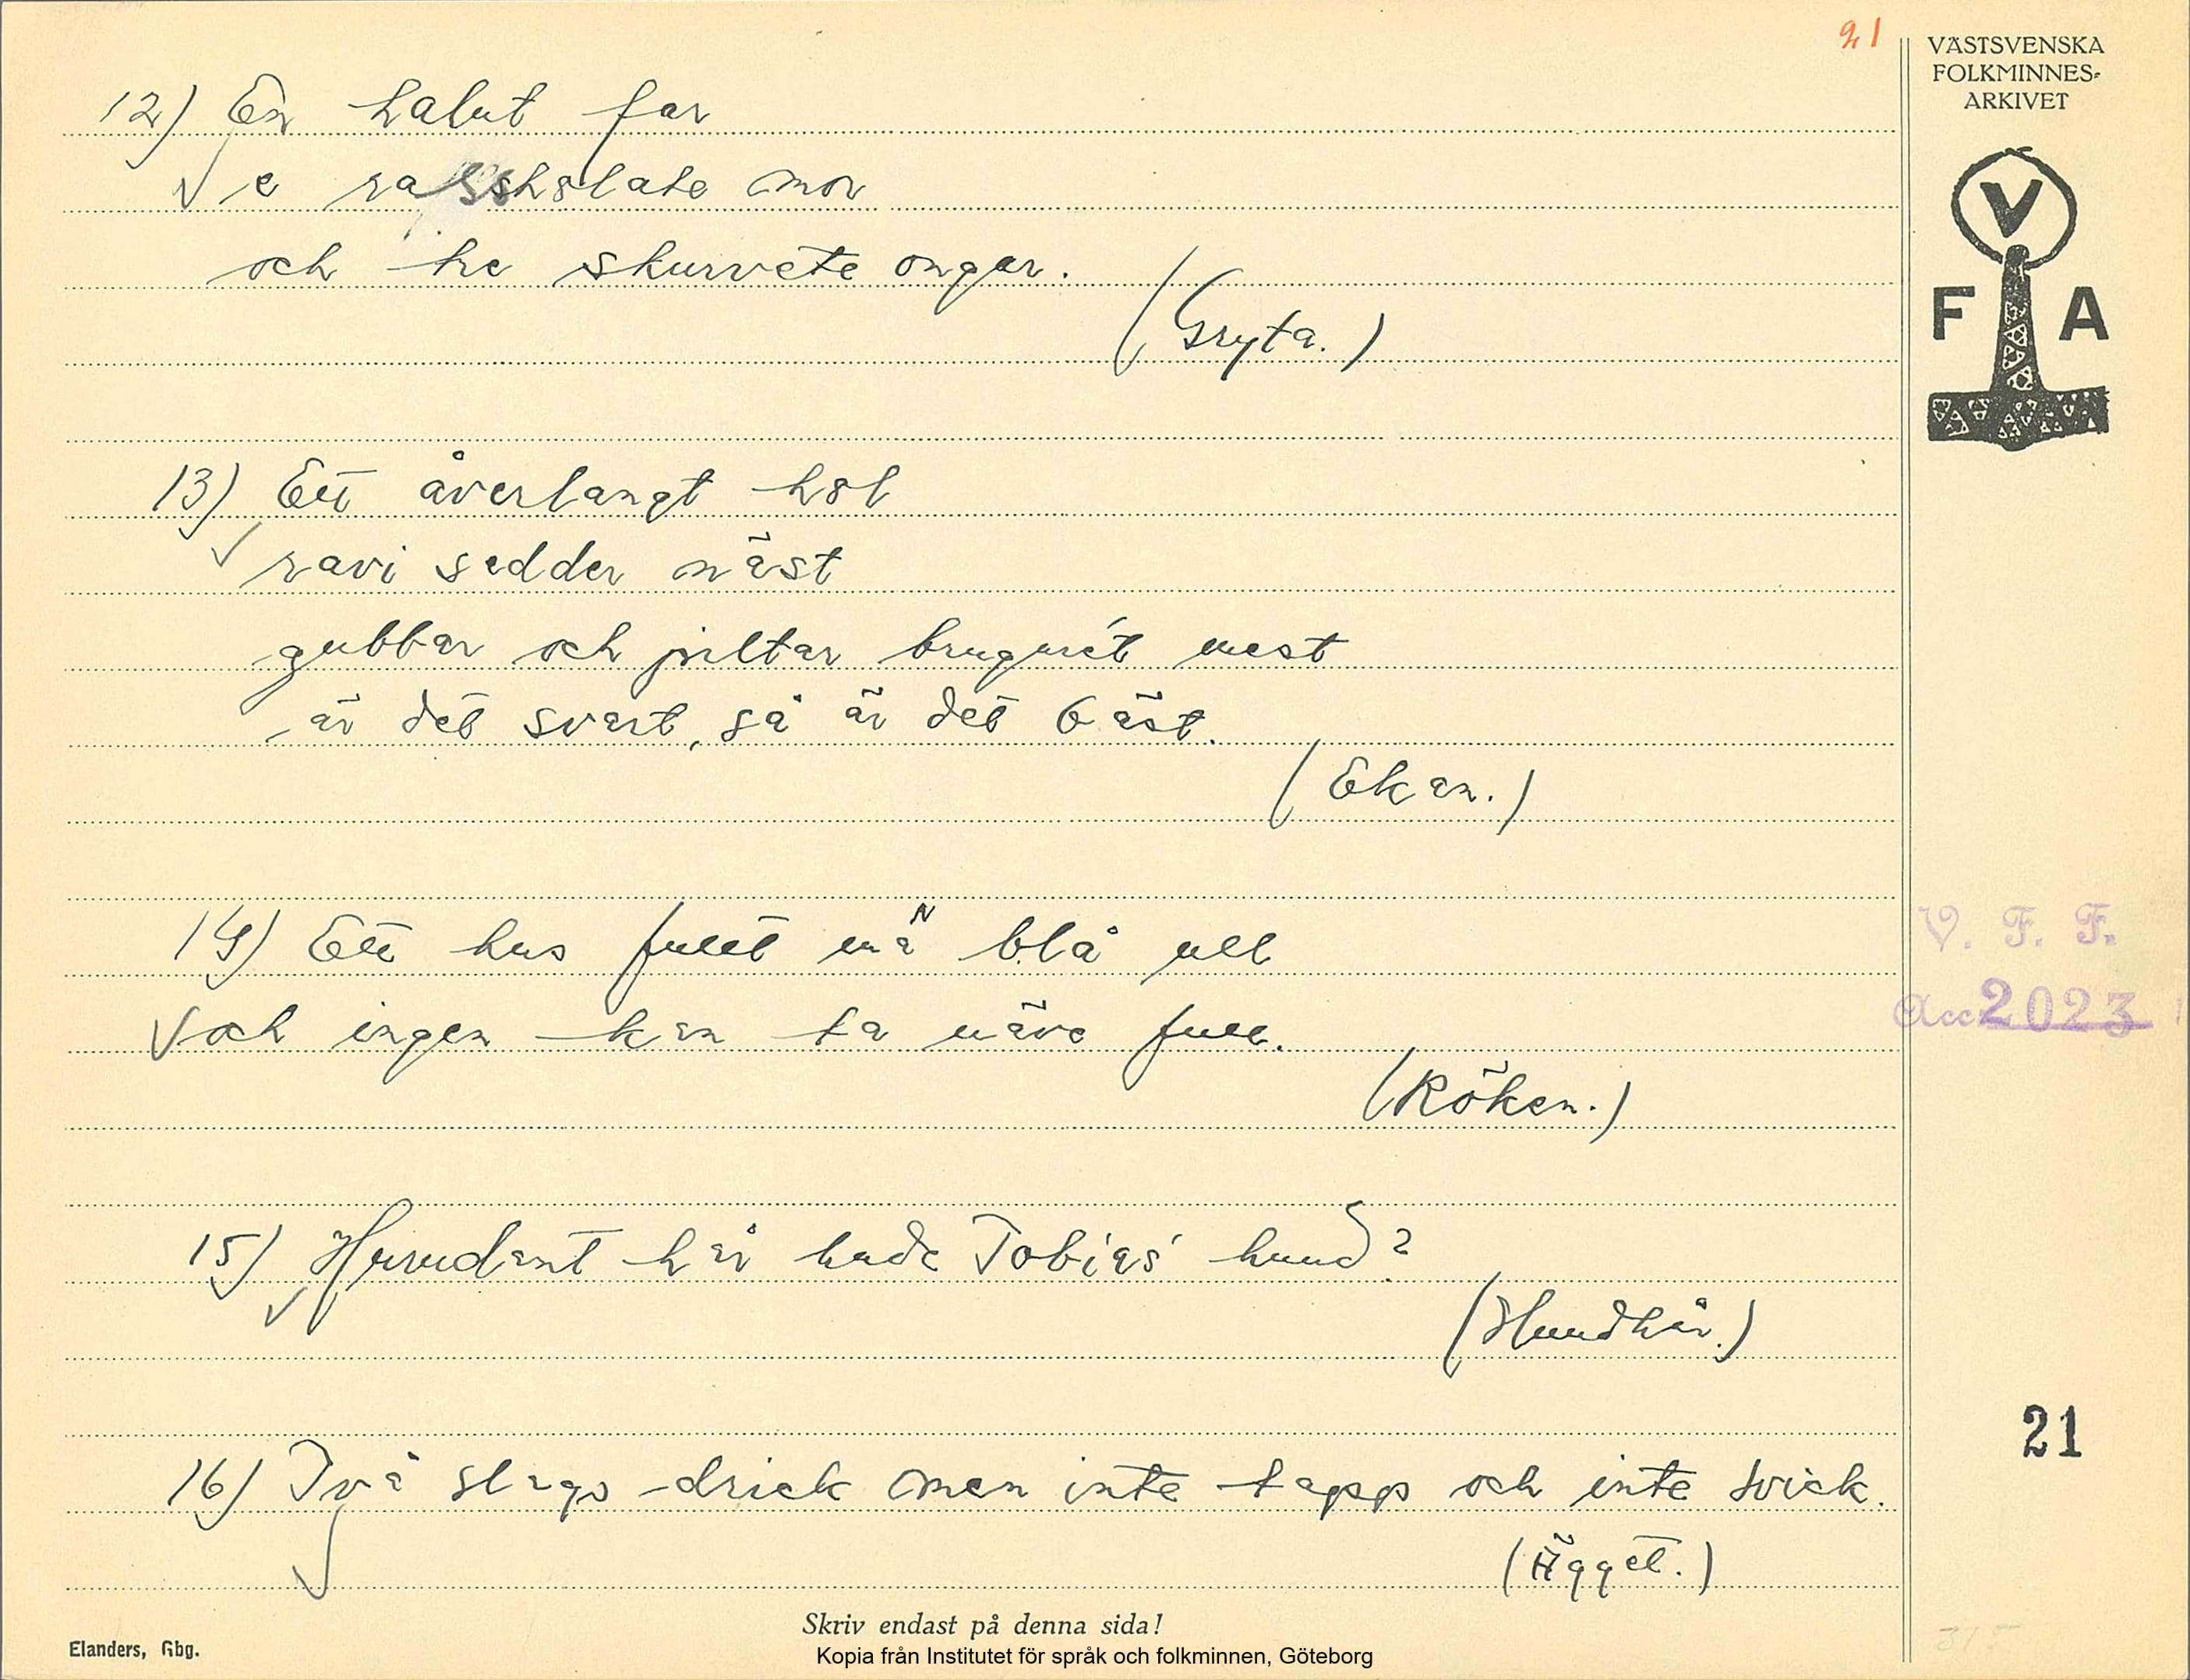 21
VÄSTSVENSKA
FOLKMINNES-
ARKIVET
V
F A
12) En halut far
e rasshålate mor
och tre skurvete ongar.
(Gryta.)
13) Ett åverlangt hål
ravi sedder näst
gubbar och piltar brugur'et mest
är det svart, så är det bäst.
(Ekan.)
14) Ett hus fullt mä blå ull
och ingen kan ta näve full.
(Röken.)
15) Hurudant hår hade Tobias' hund?
(Hundhår.)
16) Två slags drick men inte tapp och inte svick.
(Ägget.)
V. F. F.
Acc 2023
21
Skriv endast på denna sida!
Elanders, Gbg.
Kopia från Institutet för språk och folkminnen, Göteborg